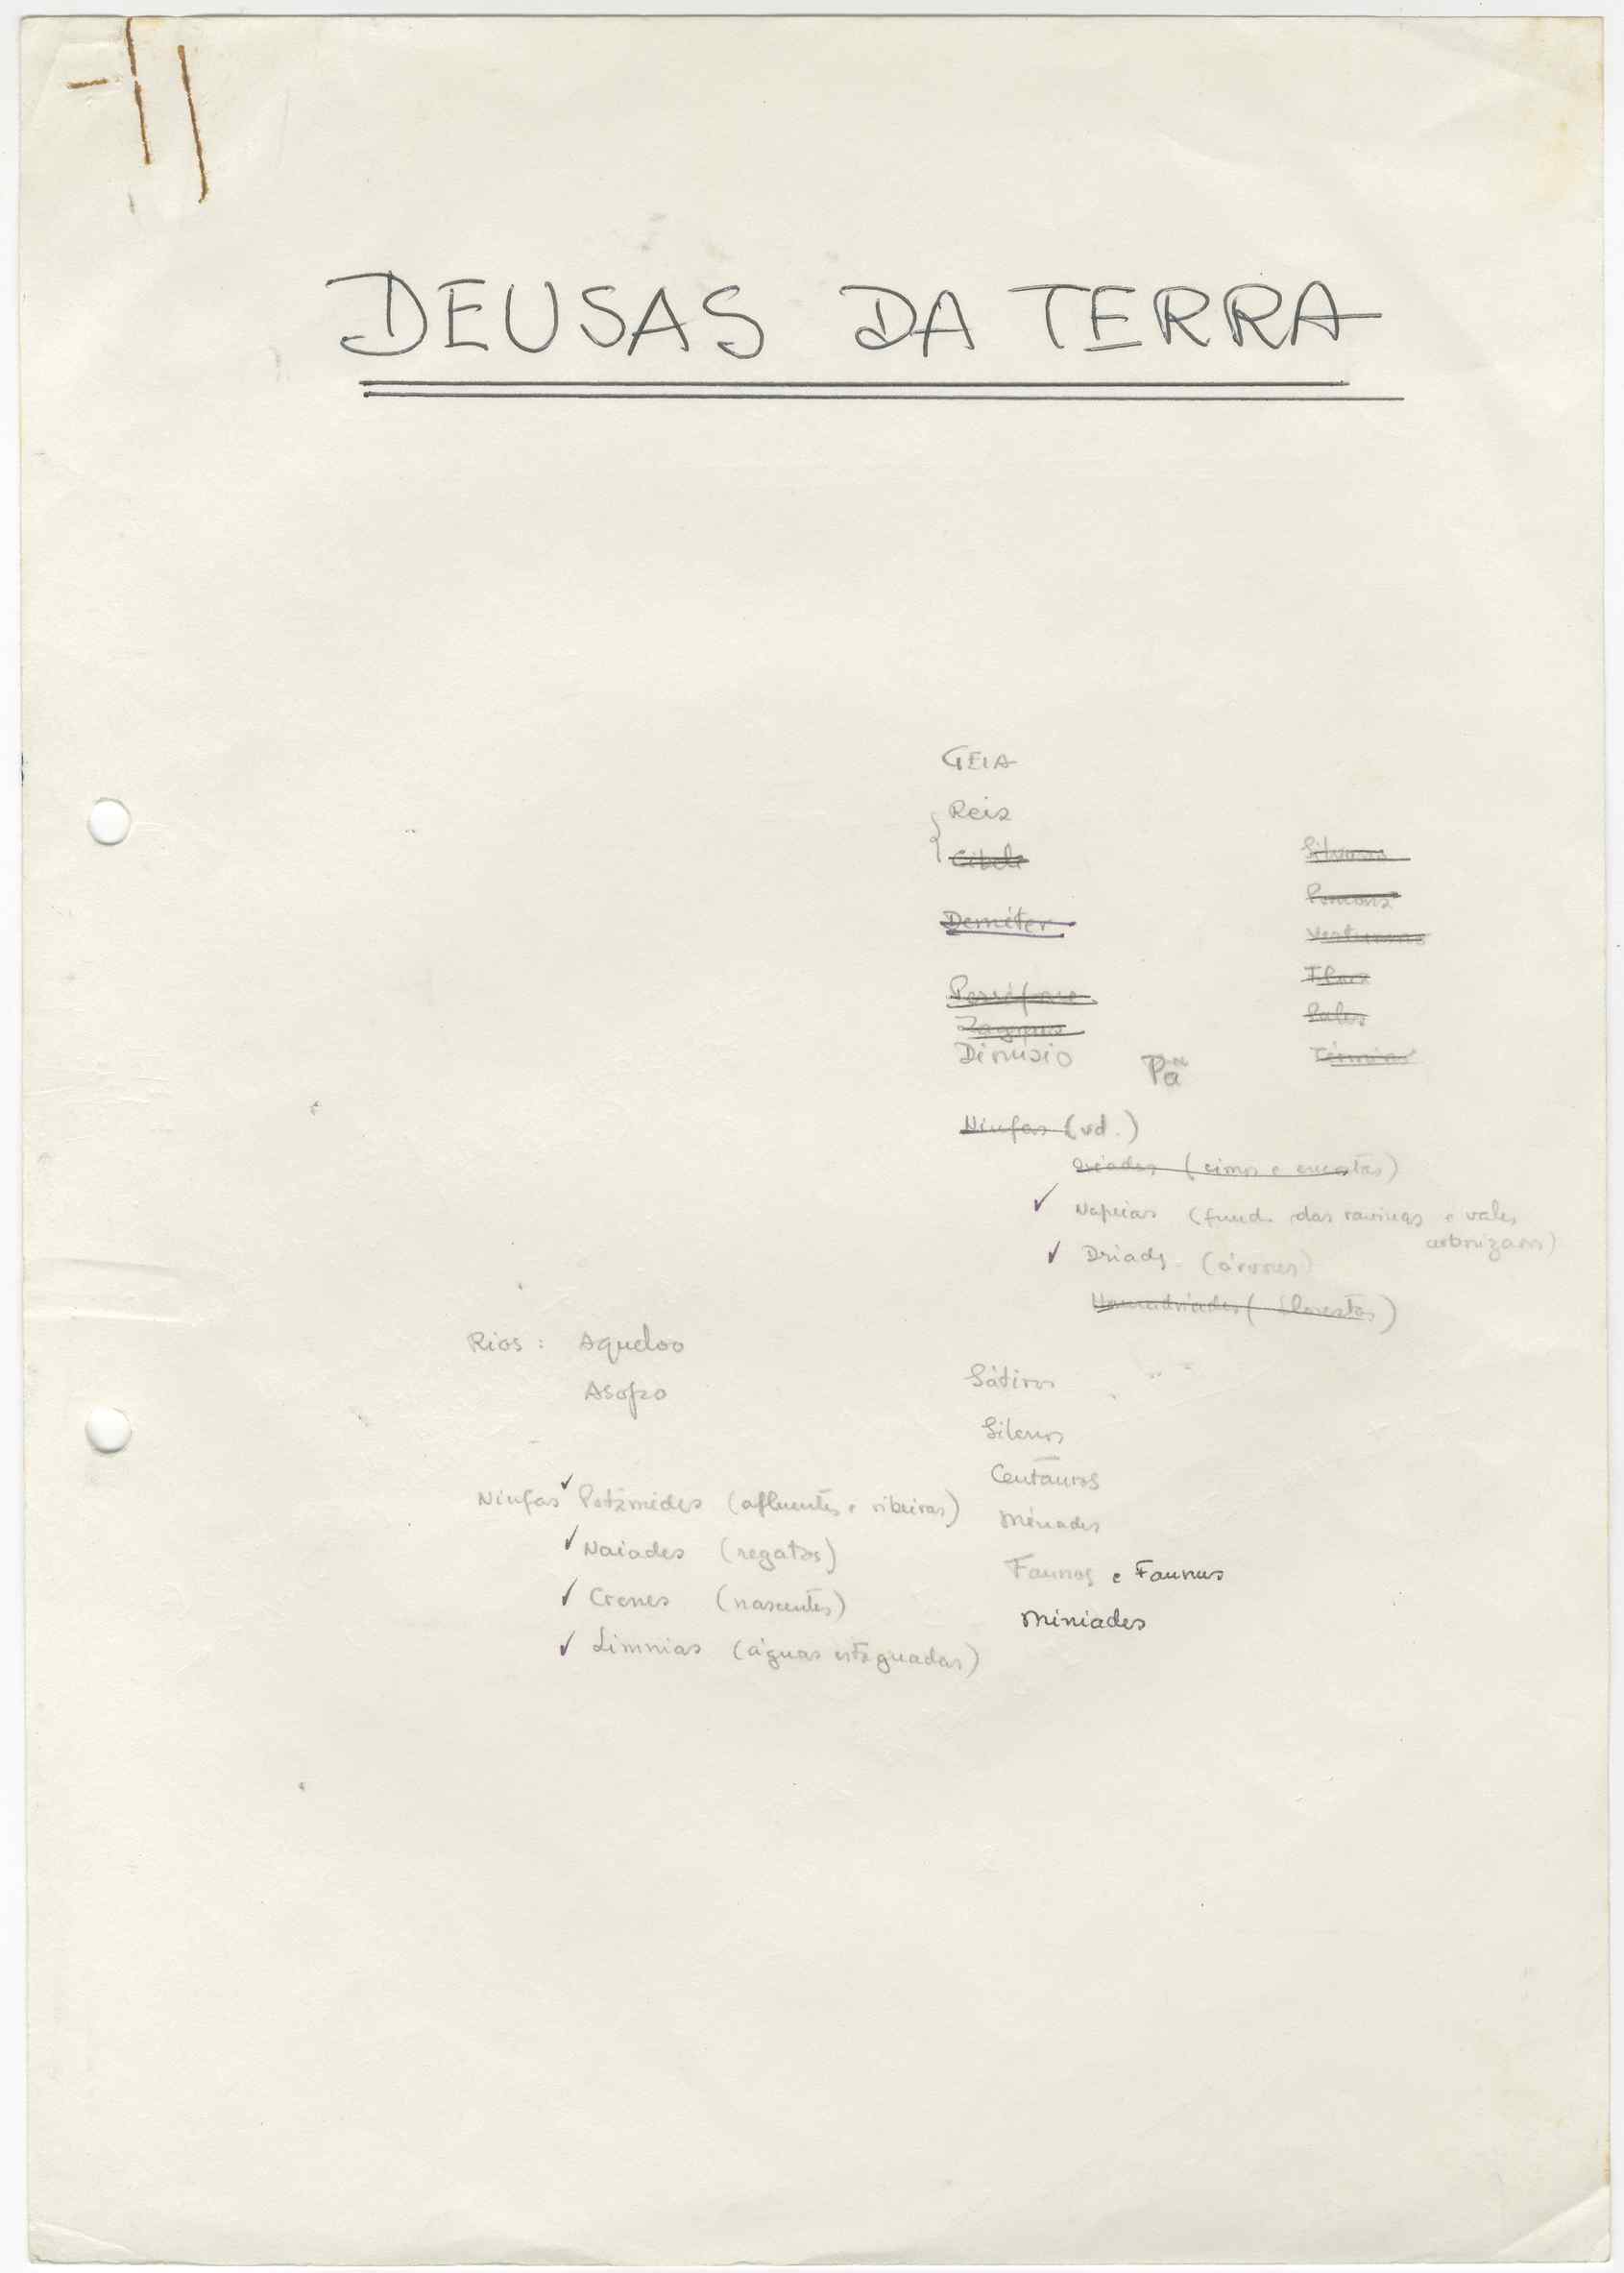 DEUSAS DA TERRA
GEIA
Reia
Cibele
Deméter
Perséfone
Zagreus
Dionísio
Pã
Silvanus
Pomona
Vertumnus
Flora
Pales
Ninfas (vd.)
Oréades (cimos e encostas)
✓ Napeias (fundo das ravinas e vales
✓ Dríades (árvores)
Hamadríades (florestas)
Rios : Aqueloo
Asopo
Ninfas ✓ Potâmides (afluentes e ribeiras)
✓ Naiades (regatos)
✓ Crenes (nascentes)
✓ Limnias (águas estagnadas)
Sátiros
Silenos
Centauros
Ménades
Faunos e Faunus
Miniades